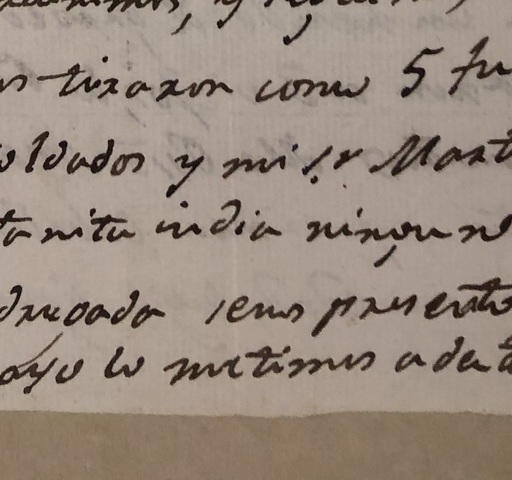 tiraron como 5 fu
soldados y mi Sr Mart
tanita india ningun
drugada senos presento
ayo lo metimos ada